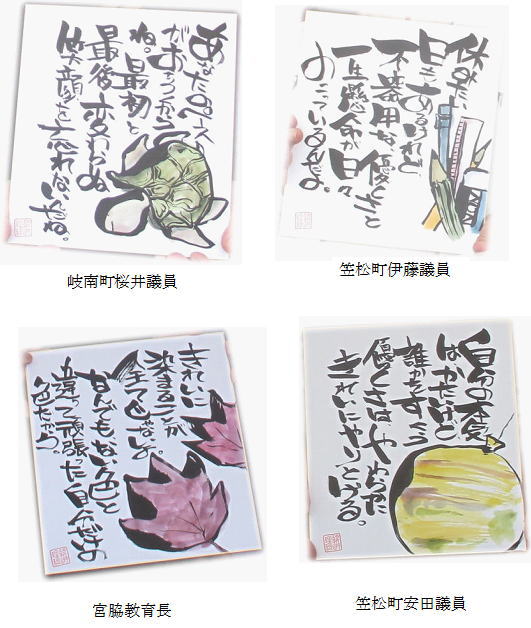 あなたのペース
がおちつくから
ね。最初と
最後、変わらぬ
笑顔を忘れないでね。
岐南町桜井議員
休みたい
日もあるけれど
不器用な優しさと
一生懸命が日々
おこっているんだよ。
笠松町伊藤議員
きれいに
染まることが
全てじゃないよ。
なんでもない色と
違って頑張った自分だけの
色だから。
宮脇教育長
自分の本気
はかたいけど
誰かをすくう
優しさはやわらかに
きれいにやりとげる。
笠松町安田議員